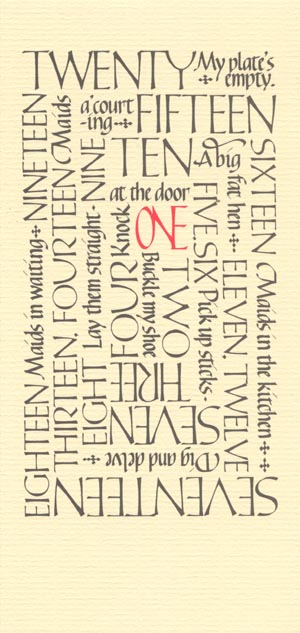 ONE
TWO
Buckle my shoe
THREE
FOUR Knock
at the door
FIVE. SIX Pick up sticks.
SEVEN
EIGHT Lay them straight. NINE
TEN
A big
fat hen
ELEVEN. TWELVE
Dig and delve
THIRTEEN. FOURTEEN Maids
a'court
-ing
FIFTEEN
SIXTEEN Maids in the kitchen
SEVENTEEN
EIGHTEEN Maids in waiting NINETEEN
TWENTY
My plate's
empty.